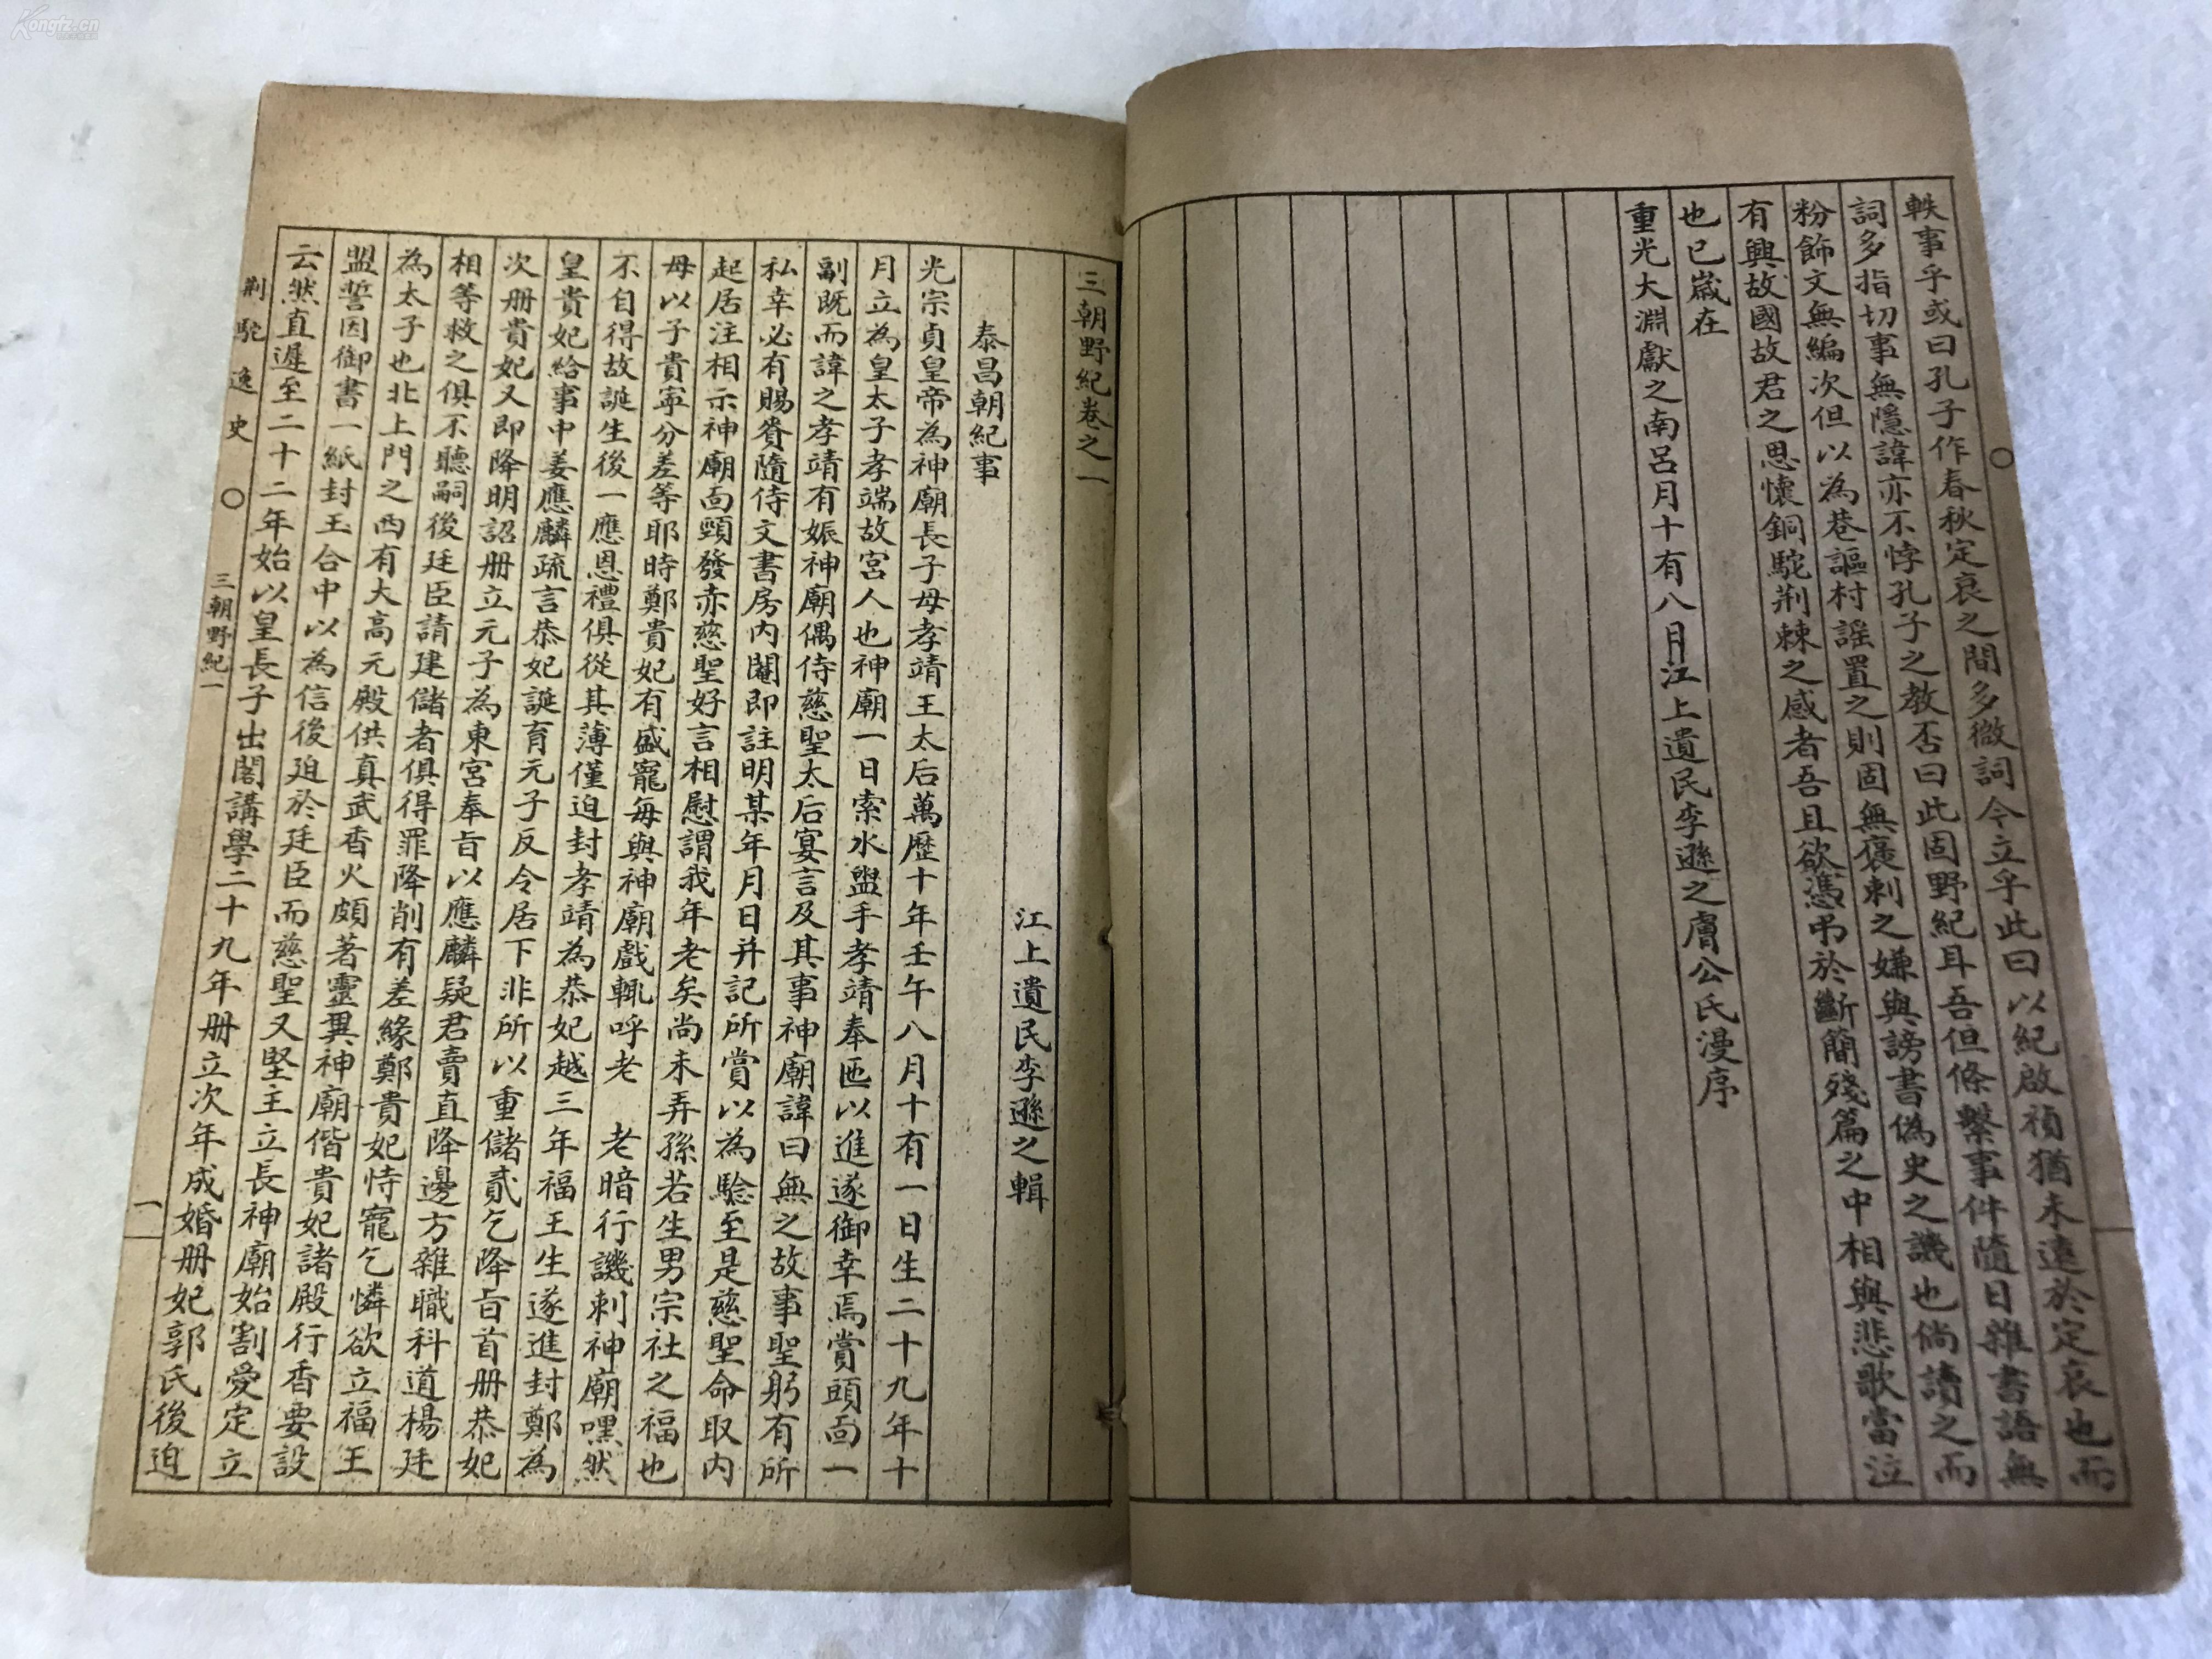 Kongfz.cn
軼事乎或曰孔子作春秋定哀之間多微詞今立乎此曰以紀啟禎猶未遠於定哀也而
詞多指切事無隱諱亦不悖孔子之教否曰此固野紀耳吾但條繫事件隨日雜書語無
粉飾文無編次但以為巷謳村謡置之則固無褒刺之嫌與謗書偽史之譏也倘讀之而
有興故國故君之思懷銅駝荆棘之感者吾且欲憑弔於斷簡殘篇之中相與悲歌當泣
也已歲在
重光大淵獻之南呂月十有八月江上遺民李遜之膚公氏漫序
三朝野紀卷之一
江上遺民李遜之輯
泰昌朝紀事
光宗貞皇帝為神廟長子母孝靖王太后萬歷十年壬午八月十有一日生二十九年十
月立為皇太子孝端故宮人也神廟一日索水盥手孝靖奉匜以進遂御幸焉賞頭面一
副既而諱之孝靖有娠神廟偶侍慈聖太后宴言及其事神廟諱曰無之故事聖躬有所
私幸必有賜賚隨侍文書房內閹即註明某年月日并記所賞以為騐至是慈聖命取內
起居注相示神廟面頸發赤慈聖好言相慰謂我年老矣尚未弄孫若生男宗社之福也
母以子貴寧分差等耶時鄭貴妃有盛寵每與神廟戲輒呼老 老暗行譏刺神廟嘿然
不自得故誕生後一應恩禮俱從其薄僅迫封孝靖為恭妃越三年福王生遂進封鄭為
皇貴妃給事中姜應麟疏言恭妃誕育元子反令居下非所以重儲貳乞降旨首册恭妃
次册貴妃又即降明詔册立元子為東宮奉旨以應麟疑君賣直降邊方雜職科道楊廷
相等救之俱不聽嗣後廷臣請建儲者俱得罪降削有差緣鄭貴妃恃寵乞憐欲立福王
為太子也北上門之西有大高元殿供真武香火頗著靈異神廟偕貴妃諸殿行香要設
盟誓因御書一紙封玉合中以為信後廹於廷臣而慈聖又堅主立長神廟始割愛定立
云然直遲至二十二年始以皇長子出閣講學二十九年册立次年成婚册妃郭氏後迫
荆駝逸史 〇 三朝野紀一 一